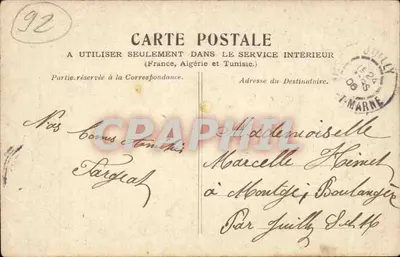 92
CARTE POSTALE
A UTILISER SEULEMENT DANS LE SERVICE INTÉRIEUR
(France, Algérie et Tunisie.)
Partie réservée à la Correspondance.
Adresse du Destinataire.
JUILLY
24
08
MARNE
CPAPHIL
Nos
Bonnes Amitiés
Fargeat
Mademoiselle
Marcelle
à Boulanger
Par Juilly S et M